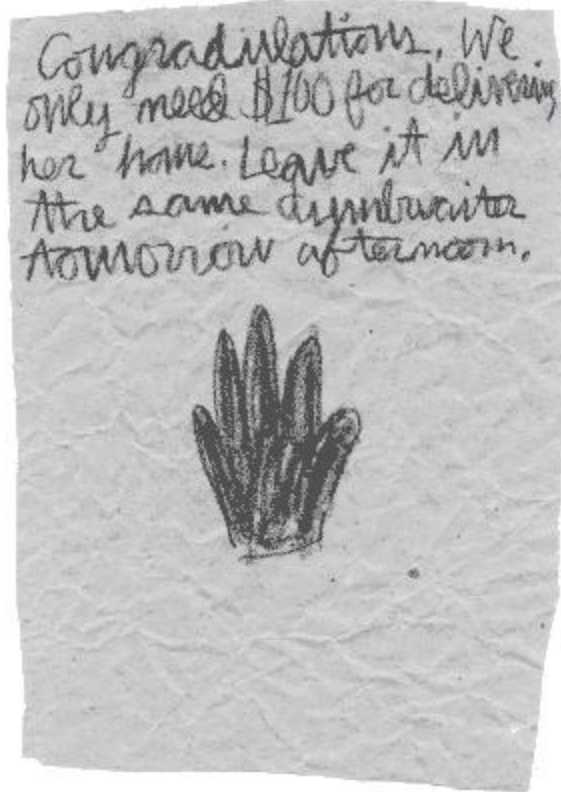 Congradulations. We
only need $100 for delivering
her home. Leave it in
the same dumbwaiter
tomorrow afternoon.